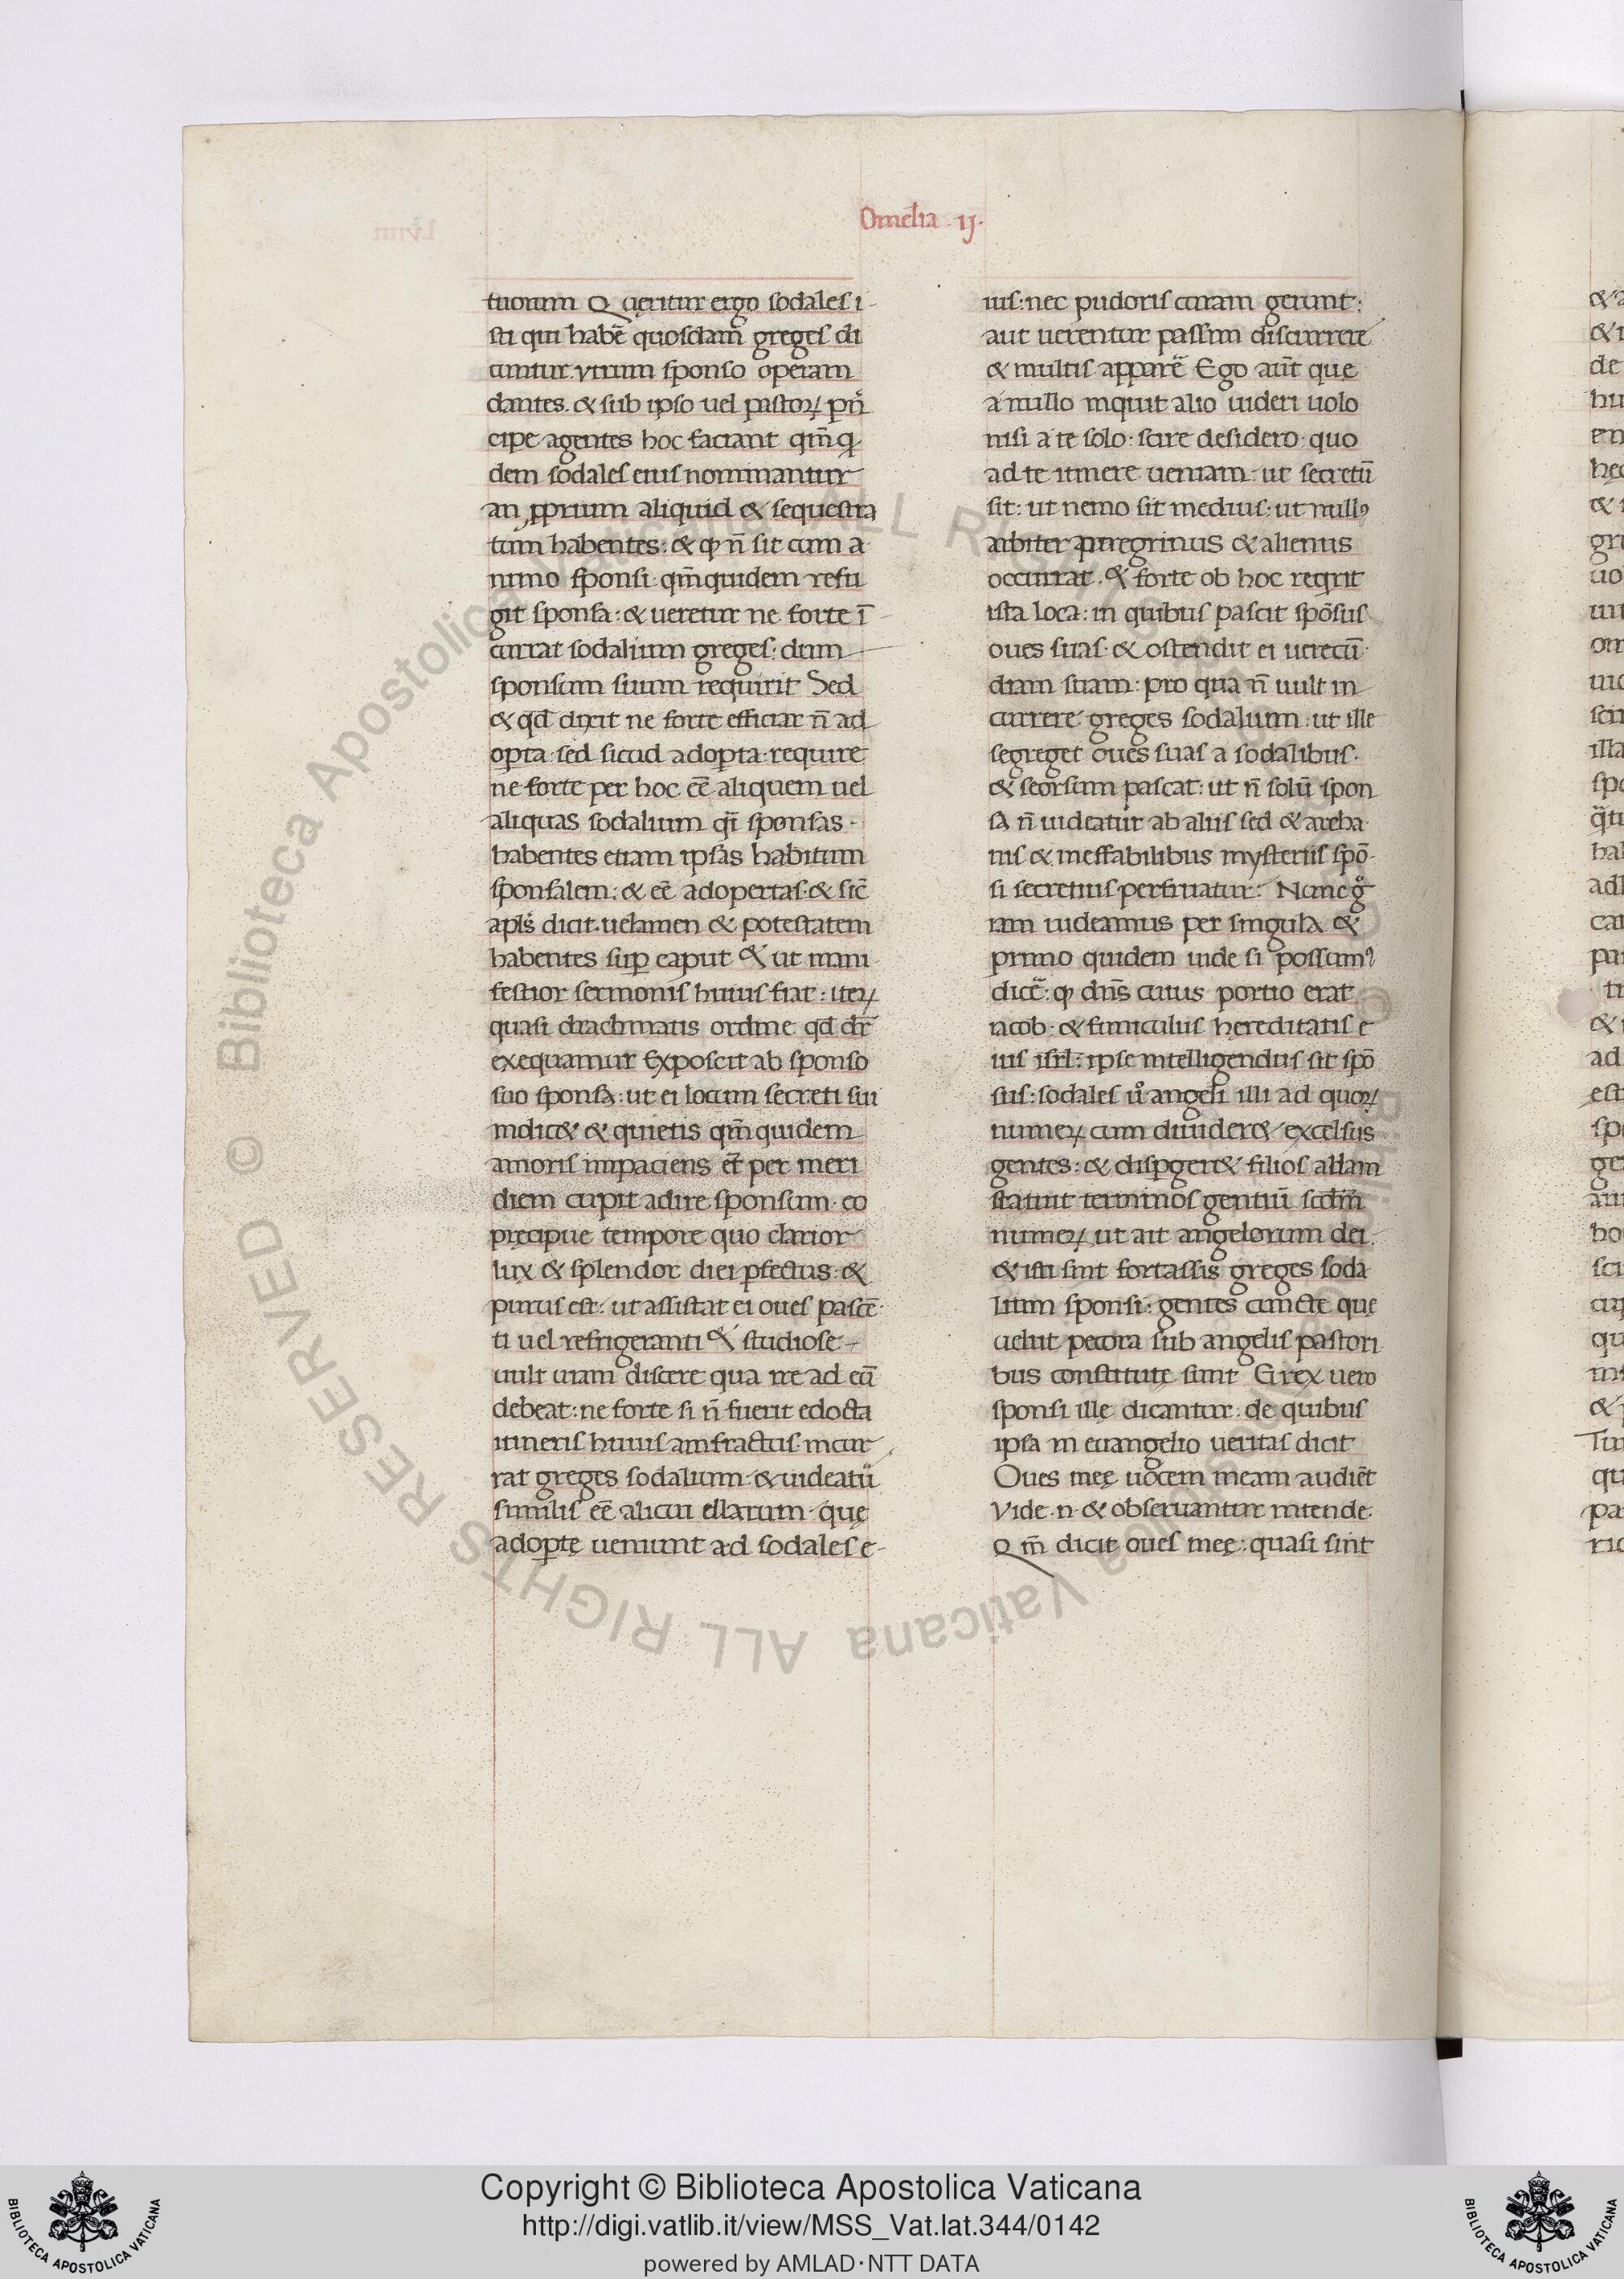 Omelia ij.
tuorum Queritur ergo sodales i-
sti qui habēt quosdam greges di
cuntur. vtrum sponso operam
dantes. & sub ipso uel pastoꝝ pn̄
cipe agentes hoc faciant qm̄ qͥ
dem sodales eius nominantur
an ꝓprium aliquid & sequestra
tum habentes: & ꝙ n̄ sit cum a
nimo sponsi qm̄quidem refu
git sponsa: & ueretur ne forte ī
currat sodalium greges: dum
sponsum suum requirit Sed
& qd̄ dixit ne forte efficiar n̄ ad
opta sed sicud adopta require
ne forte per hoc eē aliquem uel
aliquas sodalium qͣi sponsas
habentes etiam ipsas habitum
sponsalem: & eē adopertas & sic̄
apls̄ dicit uelamen & potestatem
habentes suꝑ caput & ut mani
festior sermonis huius fiat: iteꝝ
quasi drachmatis ordine qd̄ dr̄
exequamur Exposcit ab sponso
suo sponsa: ut ei locum secreti sui
indic& & quietis qm̄ quidem
amoris impaciens et̄ per meri
diem cupit adire sponsum eo
precipue tempore quo clarior
lux & splendor diei ꝑfectus &
purus est: ut assistat ei oues pascē-
ti uel refrigeranti & studiose
uult uiam discere qua ire ad eū
debeat: ne forte si n̄ fuerit edocta
itineris huius amfractus incur
rat greges sodalium & uideatur
similis eē alicui illarum que
adopte ueniunt ad sodales e-
ius: nec pudoris curam gerunt:
aut uerentur passim discurrere
& multis apparē Ego aut̄ que
a nullo inquit alio uideri uolo
nisi a te solo: scire desidero quo
ad te itinere ueniam ut secretū
sit: ut nemo sit medius: ut nullꝰ
arbiter peregrinus & alienus
occurrat. & forte ob hoc reqͥrit
ista loca: in quibus pascit spōsus
oues suas & ostendit ei uerecū
diam suam: pro qua n̄ uult in
currere greges sodalium ut ille
segreget oues suas a sodalibus
& seorsum pascat: ut n̄ solū spon
sa n̄ uideatur ab aliis sed & archa
nis & ineffabilibus mysteriis spō-
si secretius perfruatur: Nunc gͦ
iam uideamus per singula &
primo quidem uide si possumꝰ
dicē: ꝙ dn̄s cuius portio erat
iacob & funiculus hereditatis e
ius isrl: ipse intelligendus sit spō
sus: sodales uͦ angeli illi ad quoꝝ
numeꝝ cum diuider& excelsus
gentes: & dispger& filios adam
statuit terminos gentiū scdm̄
numeꝝ ut ait angelorum dei
& isti sint fortassis greges soda
lium sponsi: gentes cuncte que
uelut pecora sub angelis pastori
bus constitute sunt Grex uero
sponsi ille dicantur de quibus
ipsa in euangelio ueritas dicit
Oues meę uocem meam audiēt
Vide n & obseruantur intende
Qm̄ dicit oues meę: quasi sint
Copyright © Biblioteca Apostolica Vaticana
http://digi.vatlib.it/view/MSS_Vat.lat.344/0142
powered by AMLAD·NTT DATA